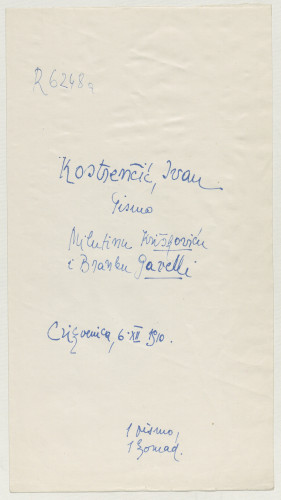 R 6248a
Kostrenčić, Ivan
Pismo
Milutinu
i Branku Gavelli
Crikvenica, 6. XII 1910.
1 pismo,
1 komad.